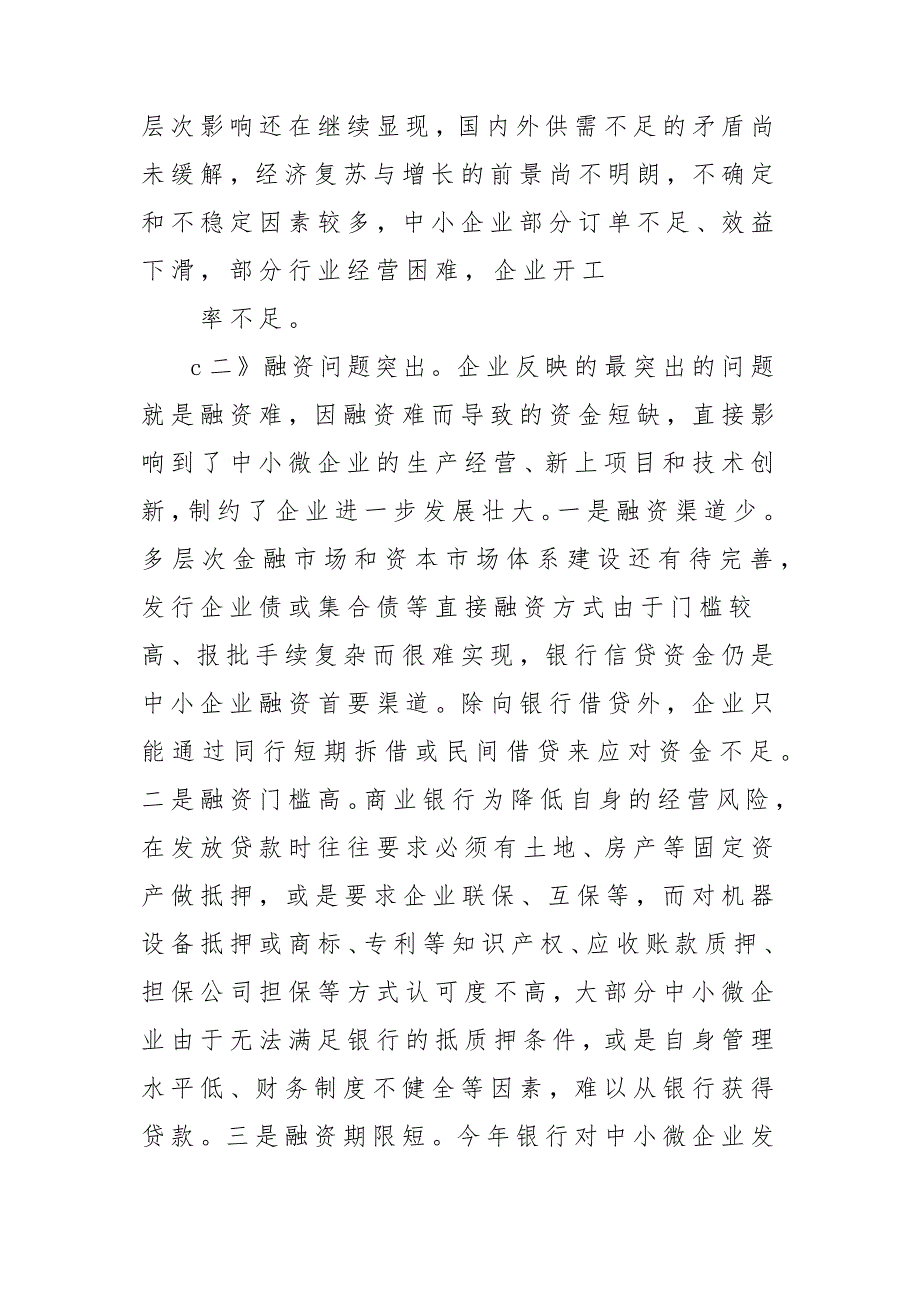 层次影响还在继续显现，国内外供需不足的矛盾尚
未缓解，经济复苏与增长的前景尚不明朗，不确定
和不稳定因素较多，中小企业部分订单不足、效益
下滑，部分行业经营困难，企业开工
率不足。
c二》融资问题突出。企业反映的最突出的问题
就是融资难，因融资难而导致的资金短缺，直接影
响到了中小微企业的生产经营、新上项目和技术创
新，制约了企业进一步发展壮大。一是融资渠道少。
多层次金融市场和资本市场体系建设还有待完善，
发行企业债或集合债等直接融资方式由于门槛较
高、报批手续复杂而很难实现，银行信贷资金仍是
中小企业融资首要渠道。除向银行借贷外，企业只
能通过同行短期拆借或民间借贷来应对资金不足。
二是融资门槛高。商业银行为降低自身的经营风险，
在发放贷款时往往要求必须有土地、房产等固定资
产做抵押，或是要求企业联保、互保等，而对机器
设备抵押或商标、专利等知识产权、应收账款质押、
担保公司担保等方式认可度不高，大部分中小微企
业由于无法满足银行的抵质押条件，或是自身管理
水平低、财务制度不健全等因素，难以从银行获得
贷款。三是融资期限短。今年银行对中小微企业发